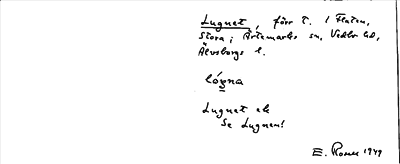 Lugnet, förr t. 1 Flaten,
Stora i Ärtemarks sn, Vedbo hd,
Älvsborgs l.
lógna
Lugnet
Se Lugnen!
E. Rosen 1949